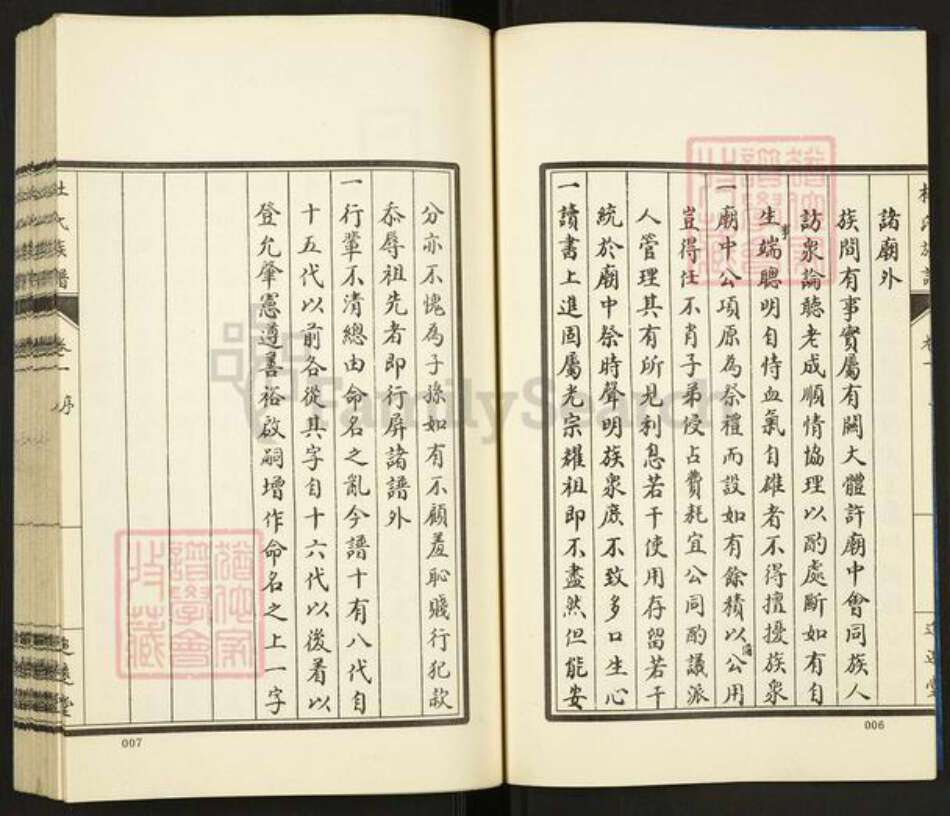 諸廟外
族間有事實屬有關大體許廟中會同族人
訪衆論聽老成順情協理以酌處斷如有自
生事端聰明自恃血氣自雄者不得擅擾族衆
一廟中公項原為祭禮而設如有餘積以備公用
豈得任不肖子弟侵占費耗宜公同酌議派
人管理其有所見利息若干使用存留若干
統於廟中祭時聲明族衆庶不致多口生心
一讀書上進固屬光宗耀祖即不盡然但能安
006
分亦不愧為子孫如有不顧羞恥賤行犯款
忝辱祖先者即行屏諸譜外
一行輩不清總由命名之亂今譜十有八代自
十五代以前各從其字自十六代以後着以
登允肇憲遵善裕啟嗣增作命名之上一字
杜氏族譜
卷一
序
007
FamilySearch